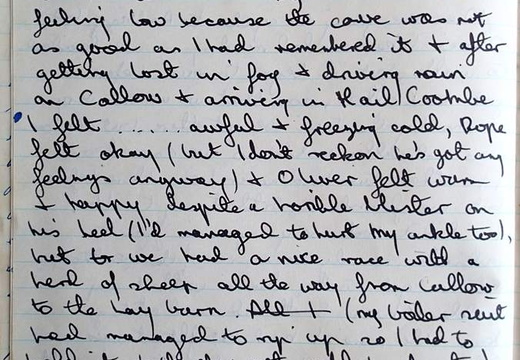 feeling low because the cave was not
as good as I had remembered it + after
getting lost in fog + driving rain
on Callow + arriving in Hail Coombe
I felt ...... awful + freezing cold, Rope
felt okay (but I don't reckon he's got any
feelings anyway) + Oliver felt warm
+ happy despite a horrible blister on
his heel (I'd managed to hurt my ankle too),
but we had a nice race with a
herd of sheep all the way from Callow
to the hay barn. (my boiler suit
had managed to rip up so I had to